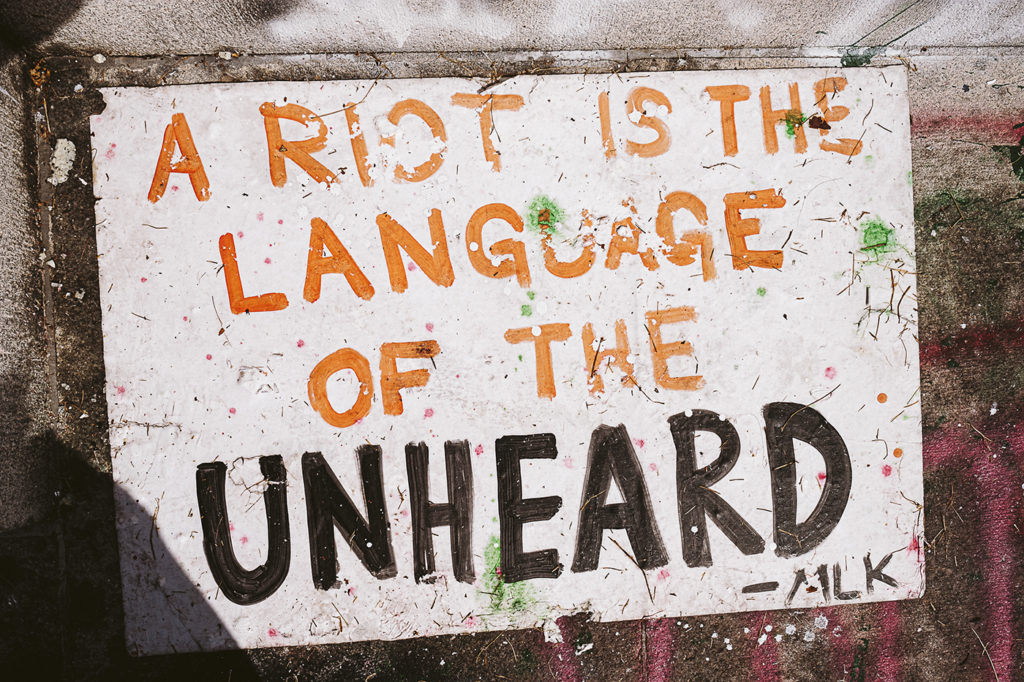 A RIOT IS THE
LANGUAGE
OF THE
UNHEARD
- MLK